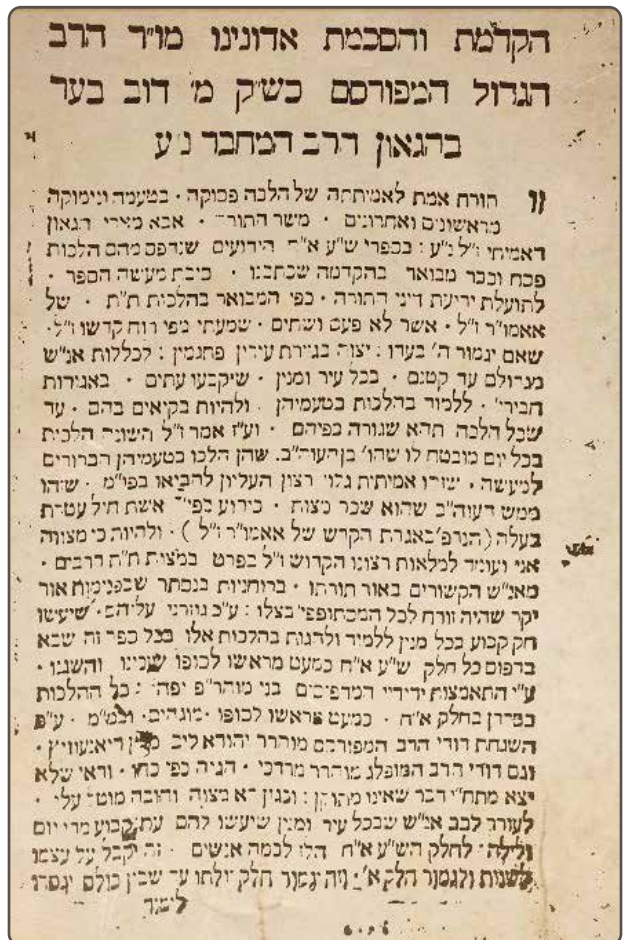 הקדמת והסכמת אדונינו מו"ר הרב
הגדול המפורסם כש"ק מ' דוב בער
בהגאון הרב המחבר נ"ע
זו תורת אמת לאמיתתה של הלכה פסוקה · בטעמה ונימוקה
מראשונים ואחרונים · משר התורה · אבא מארי הגאון
האמיתי ז"ל נ"ע : בספרי ש"ע א"ח הידועים שנדפס מהם הלכות
פסח וכבר מבואר בהקדמה שכתבנו · סיבת מעשה הספר ·
לתועלת ידיעת דיני התורה · כפי המבואר בהלכות ת"ת · של
אאמו"ר ז"ל · אשר לא פעם ושתים · שמעתי מפי רוח קדשו ז"ל ·
שאם יגמור ה' בעדו : יצוה בגזירת עירין פתגמין : לכללות אנ"ש
מגדולם עד קטנם · בכל עיר ומנין · שיקבעו עתים · באגודות
חבירי' · ללמוד בהלכות בטעמיהן · ולהיות בקיאים בהם · עד
שכל הלכה תהא שגורה בפיהם · וע"ז אמר ז"ל השונה הלכות
בכל יום מובטח לו שהו' בן העוה"ב. שהן הלכו בטעמיהן הברורים
למעשה · שזהו אמיתית גלוי רצון העליון להביאו בפו"מ · שזהו
ממש דעוה"ב שהוא שכר מצות · כידוע בפי' אשת חיל עטרת
בעלה (הנדפ' באגרת הקדש של אאמו"ר ז"ל) · ולהיות כי מצווה
אני ועומד למלאות רצונו הקדוש ז"ל בפרט במצות ת"ת דרבים ·
מאנ"ש הקשורים באור תורתו · ברוחניות בנסתר שבפנימות אור
יקר שהיה זורח לכל המסתופפי' בצלו : ע"כ גוזרני עליהם · שיעשו
חק קבוע בכל מנין ללמוד ולהגות בהלכות אלו בכל ספר זה שבא
בדפוס כל חלק ש"ע א"ח כמעט מראשו לסופו והשגנו ·
ע"י התאמצות ידידיי המדפיסים בני מוהר"פ יפה : כל ההלכות
כסדרן בחלק א"ח · כמעט מראשו לסופו · מוגהים · ע"פ
השגחת דודי הרב המפורסם מוהרר יהודא ליב מ"ץ דיאנעוויץ ·
וגם דודי הרב המופלג מוהרר מרדכי · הגיה כפי כחו · ודאי שלא
יצא מתח"י דבר שאינו מתוקן : ובגין דא מצוה וחובה מוטל עלי ·
לעורר לבב אנ"ש שבכל עיר ומנין שיעשו להם עת קבוע מדי יום
ולילה לחלק הש"ע א"ח הלז לכמה אנשים · זה יקבל על עצמו
לשנות ולגמור חלק א' : וזה יגמור חלק זולתו עד שבין כולם יגמרו
לימוד